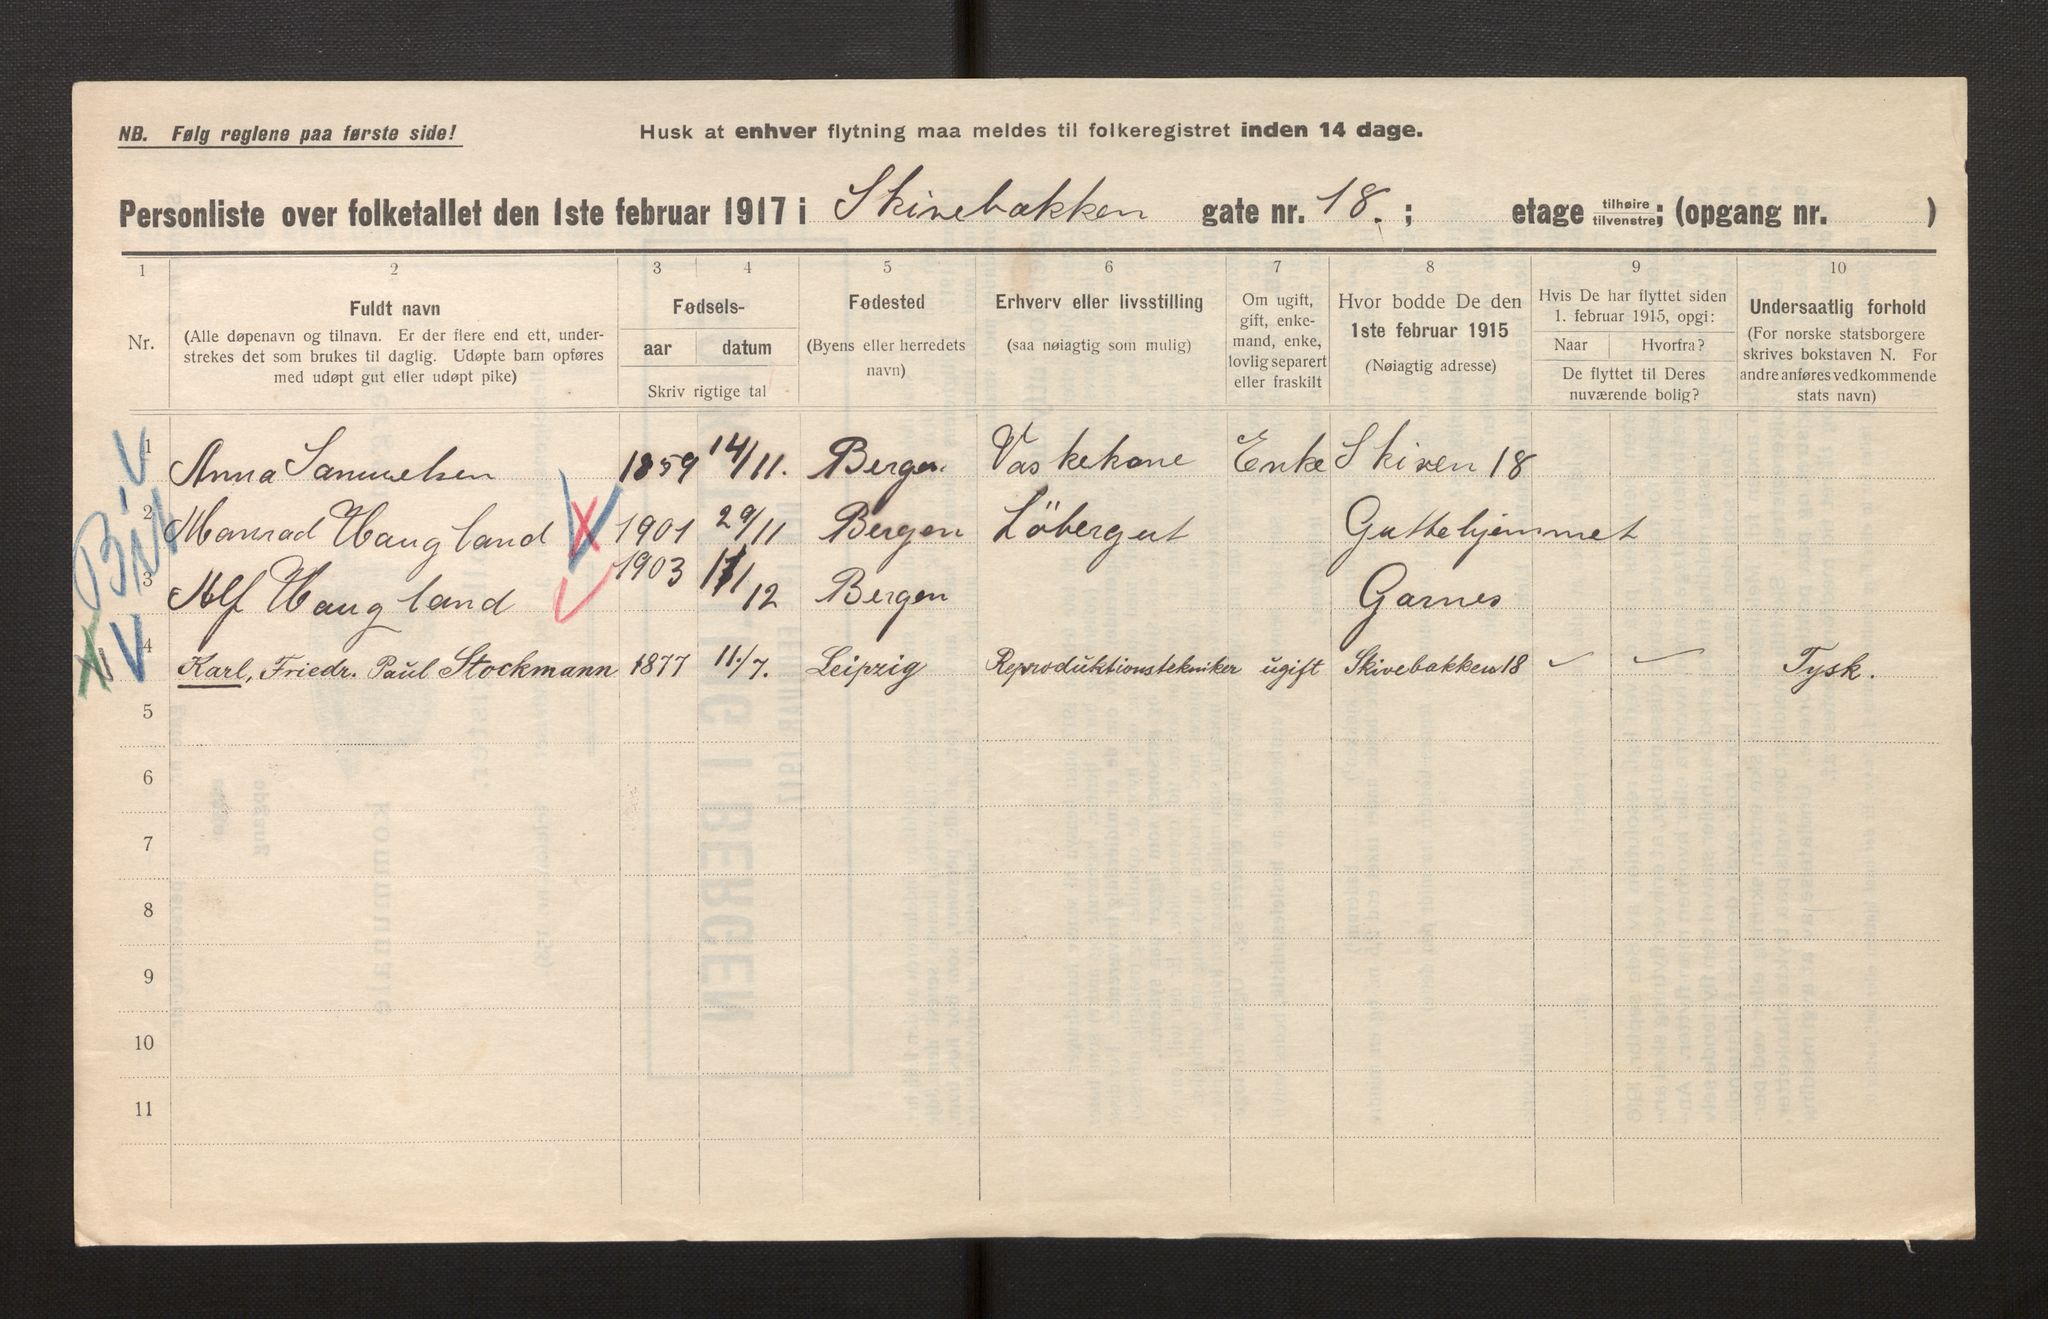 NB. Følg reglene paa første side!
Husk at enhver flytning maa meldes til folkeregistret inden 14 dage.
Personliste over folketallet den 1ste februar 1917 i Skivebakken gate nr. 18. ; etage tilhøire tilvenstre; (opgang nr. )
1 2 3 4 5 6 7 8 9 10
Nr.
Fuldt navn
(Alle døpenavn og tilnavn. Er der flere end ett, under-
strekes det som brukes til daglig. Udøpte barn opføres
med udøpt gut eller udøpt pike)
Fødsels-
aar datum
Skriv rigtige tal
Fødested
(Byens eller herredets
navn)
Erhverv eller livsstilling
(saa nøiagtig som mulig)
Om ugift,
gift, enke-
mand, enke,
lovlig separert
eller fraskilt
Hvor bodde De den
1ste februar 1915
(Nøiagtig adresse)
Hvis De har flyttet siden
1. februar 1915, opgi:
Naar Hvorfra?
De flyttet til Deres
nuværende bolig?
Undersaatlig forhold
(For norske statsborgere
skrives bokstaven N. For
andre anføres vedkommende
stats navn)
1 Anna Samuelsen 1859 14/11. Bergen Vaskekone Enke Skiven 18
2 Manrad Haugland 1901 29/11 Bergen Löbergut Guttehjemmet
3 Alf Haugland 1903 /12 Bergen Garnes
4 Karl, Friedr. Paul Stockmann 1877 11./7. Leipzig Reproduktionstekniker ugift Skivebakken 18 Tysk.
5
6
7
8
9
10
11